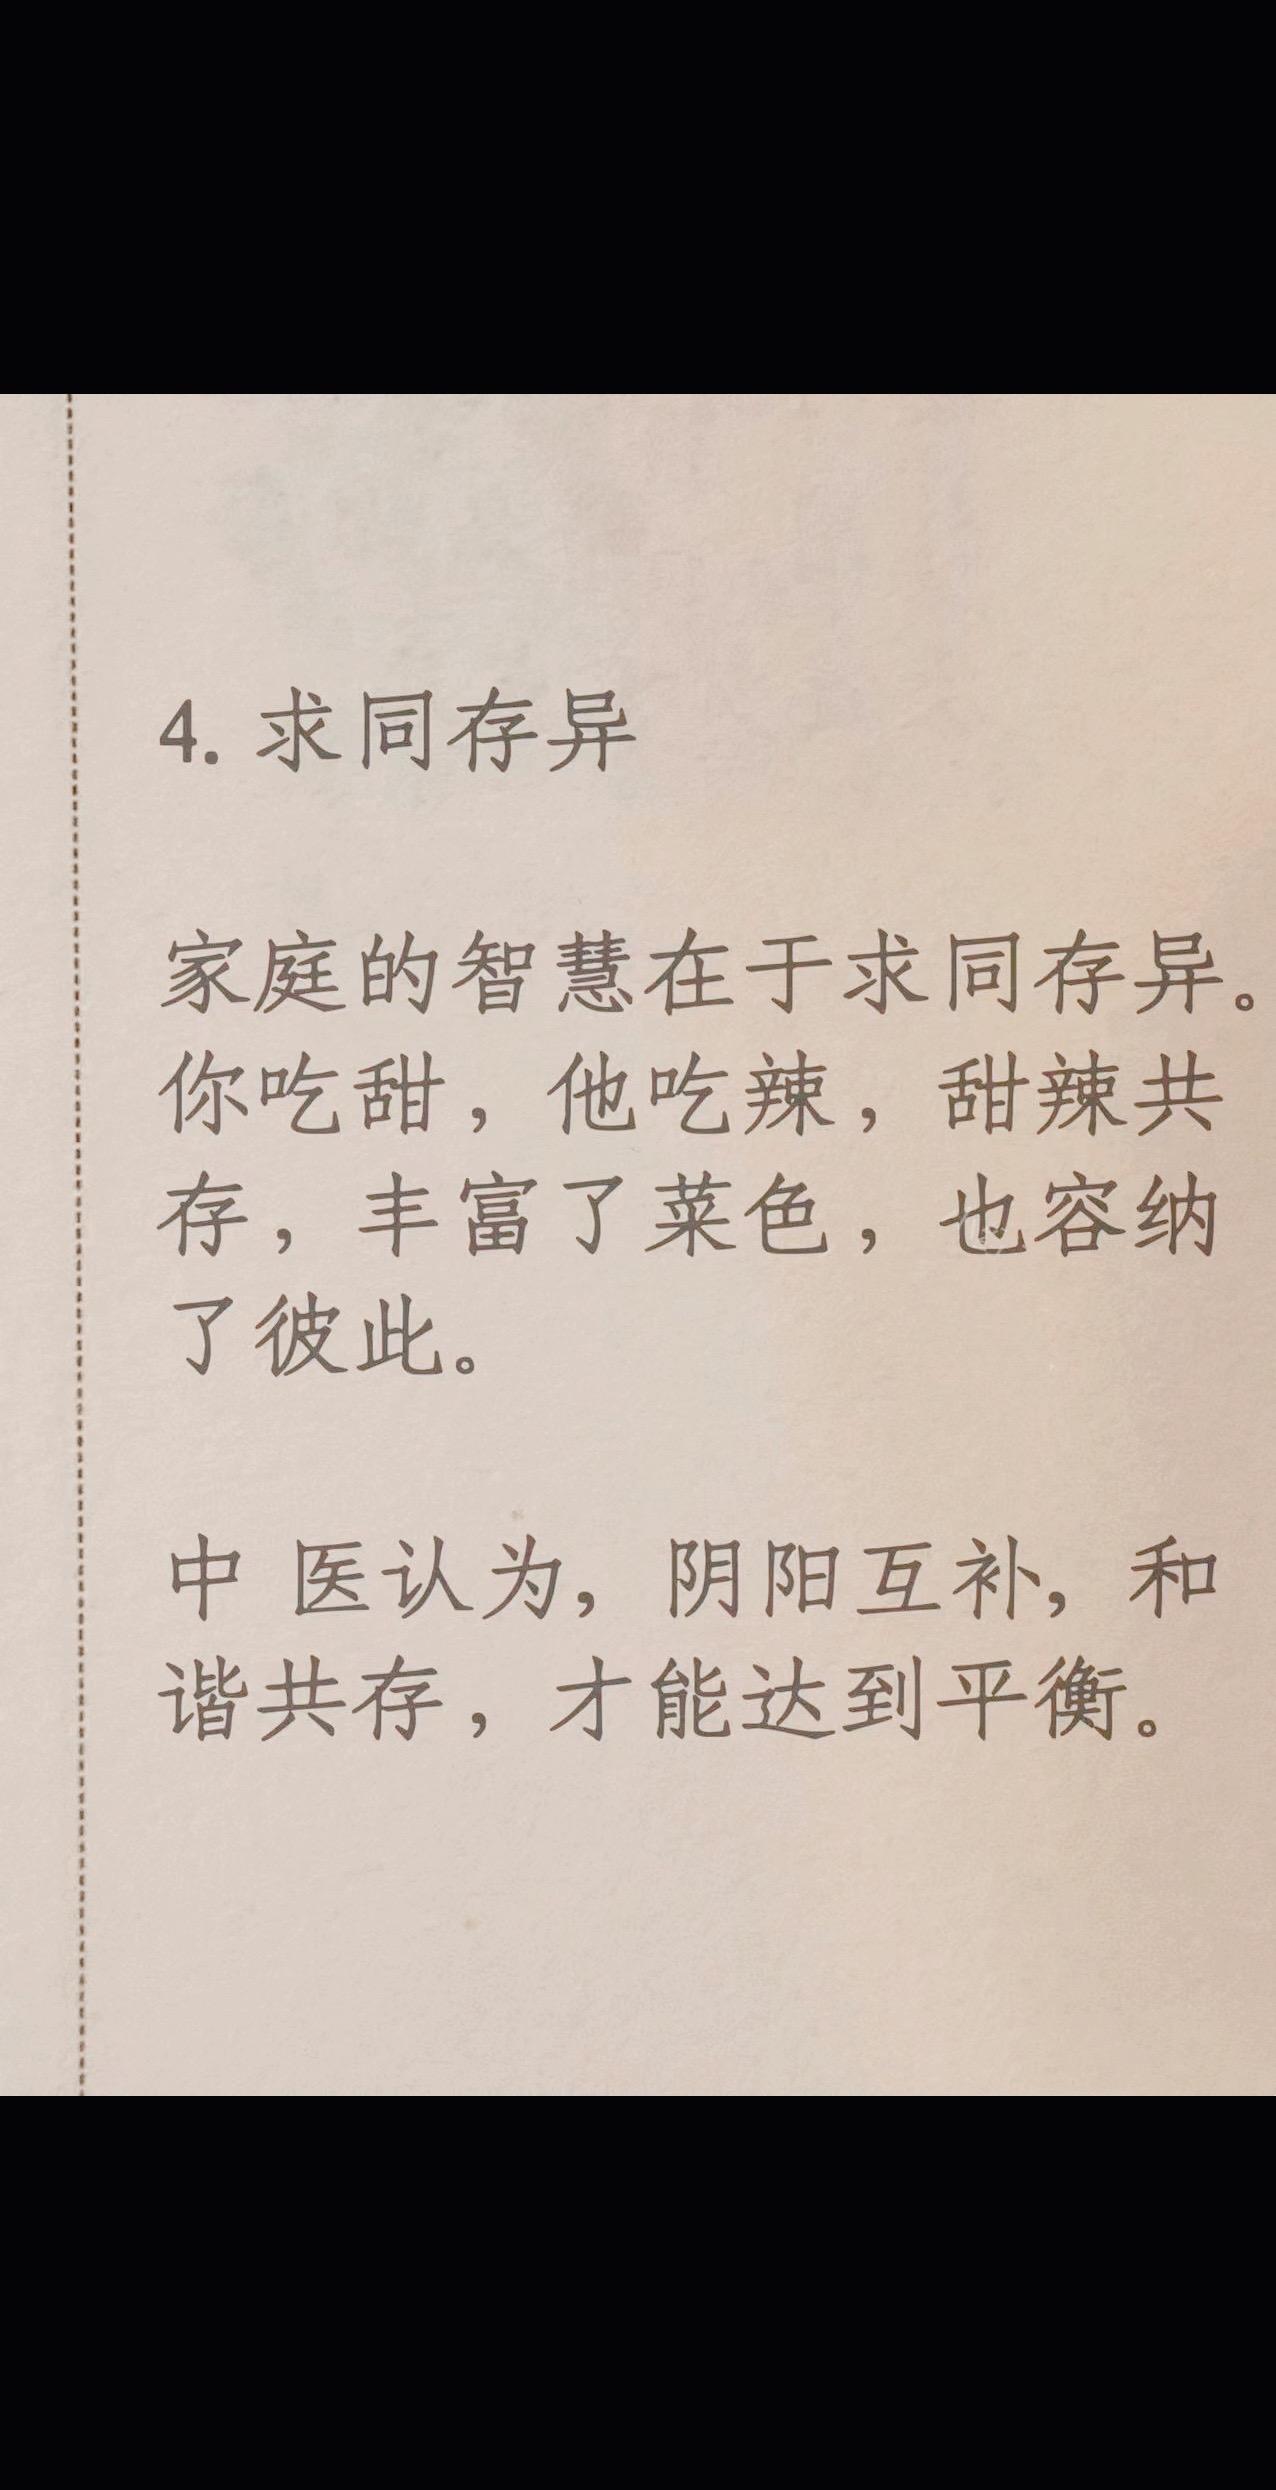 4. 求同存异
家庭的智慧在于求同存异。
你吃甜，他吃辣，甜辣共
存，丰富了菜色，也容纳
了彼此。
中 医认为，阴阳互补，和
谐共存，才能达到平衡。